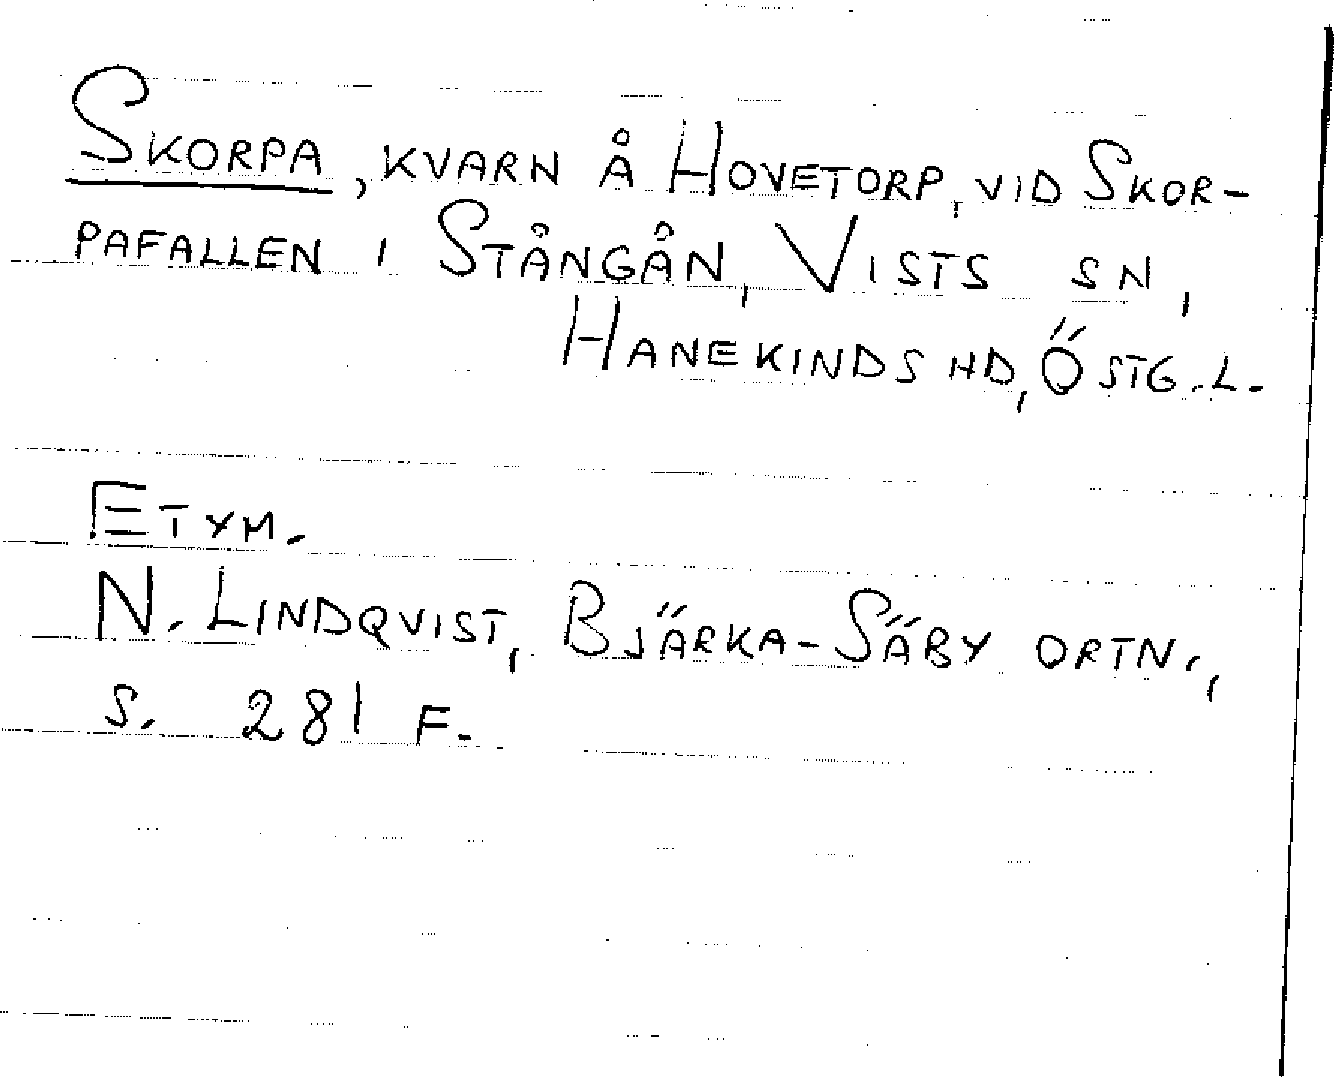 SKORPA, KVARN Å HOVETORP, VID SKOR-
PAFALLEN I STÅNGÅN, VISTS SN,
HANEKINDS HD, ÖSTG.L.
ETYM.
N. LINDQVIST, BJÄRKA-SÄBY ORTN.,
S. 281 F.